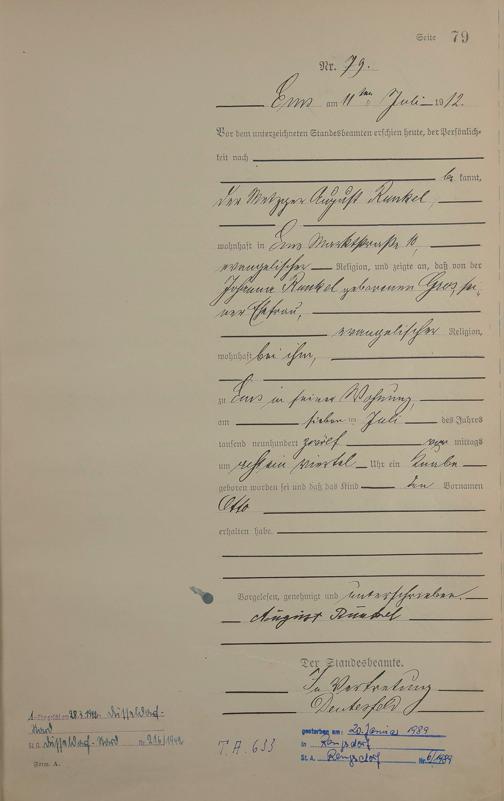 Seite 79
Nr. 79.
Ems am 11ten Juli 1912.
Vor dem unterzeichneten Standesbeamten erschien heute, der Persönlich-
keit nach
be kannt,
der Metzger August Runkel,
wohnhaft in Ems Marktstraße 11,
evangelischer Religion, und zeigte an, daß von der
Johanna Runkel geborenen Gros, sei-
ner Ehefrau,
evangelischer Religion,
wohnhaft bei ihm,
zu Ems in seiner Wohnung,
am sieben ten Juli des Jahres
tausend neunhundert zwölf vor mittags
um acht ein viertel Uhr ein Knabe
geboren worden sei und daß das Kind den Vornamen
Otto
erhalten habe.
Vorgelesen, genehmigt und unterschrieben.
August Runkel
Der Standesbeamte.
In Vertretung
1. Eheschl. am 28.3.1942 Düsseldorf-
Nord
St.A. Düsseldorf-Nord Nr. 216/1942
Form. A.
T.A. 633
gestorben am: 20. Januar 1989
in Rengsdorf
St. A. Rengsdorf Nr. 6/1989